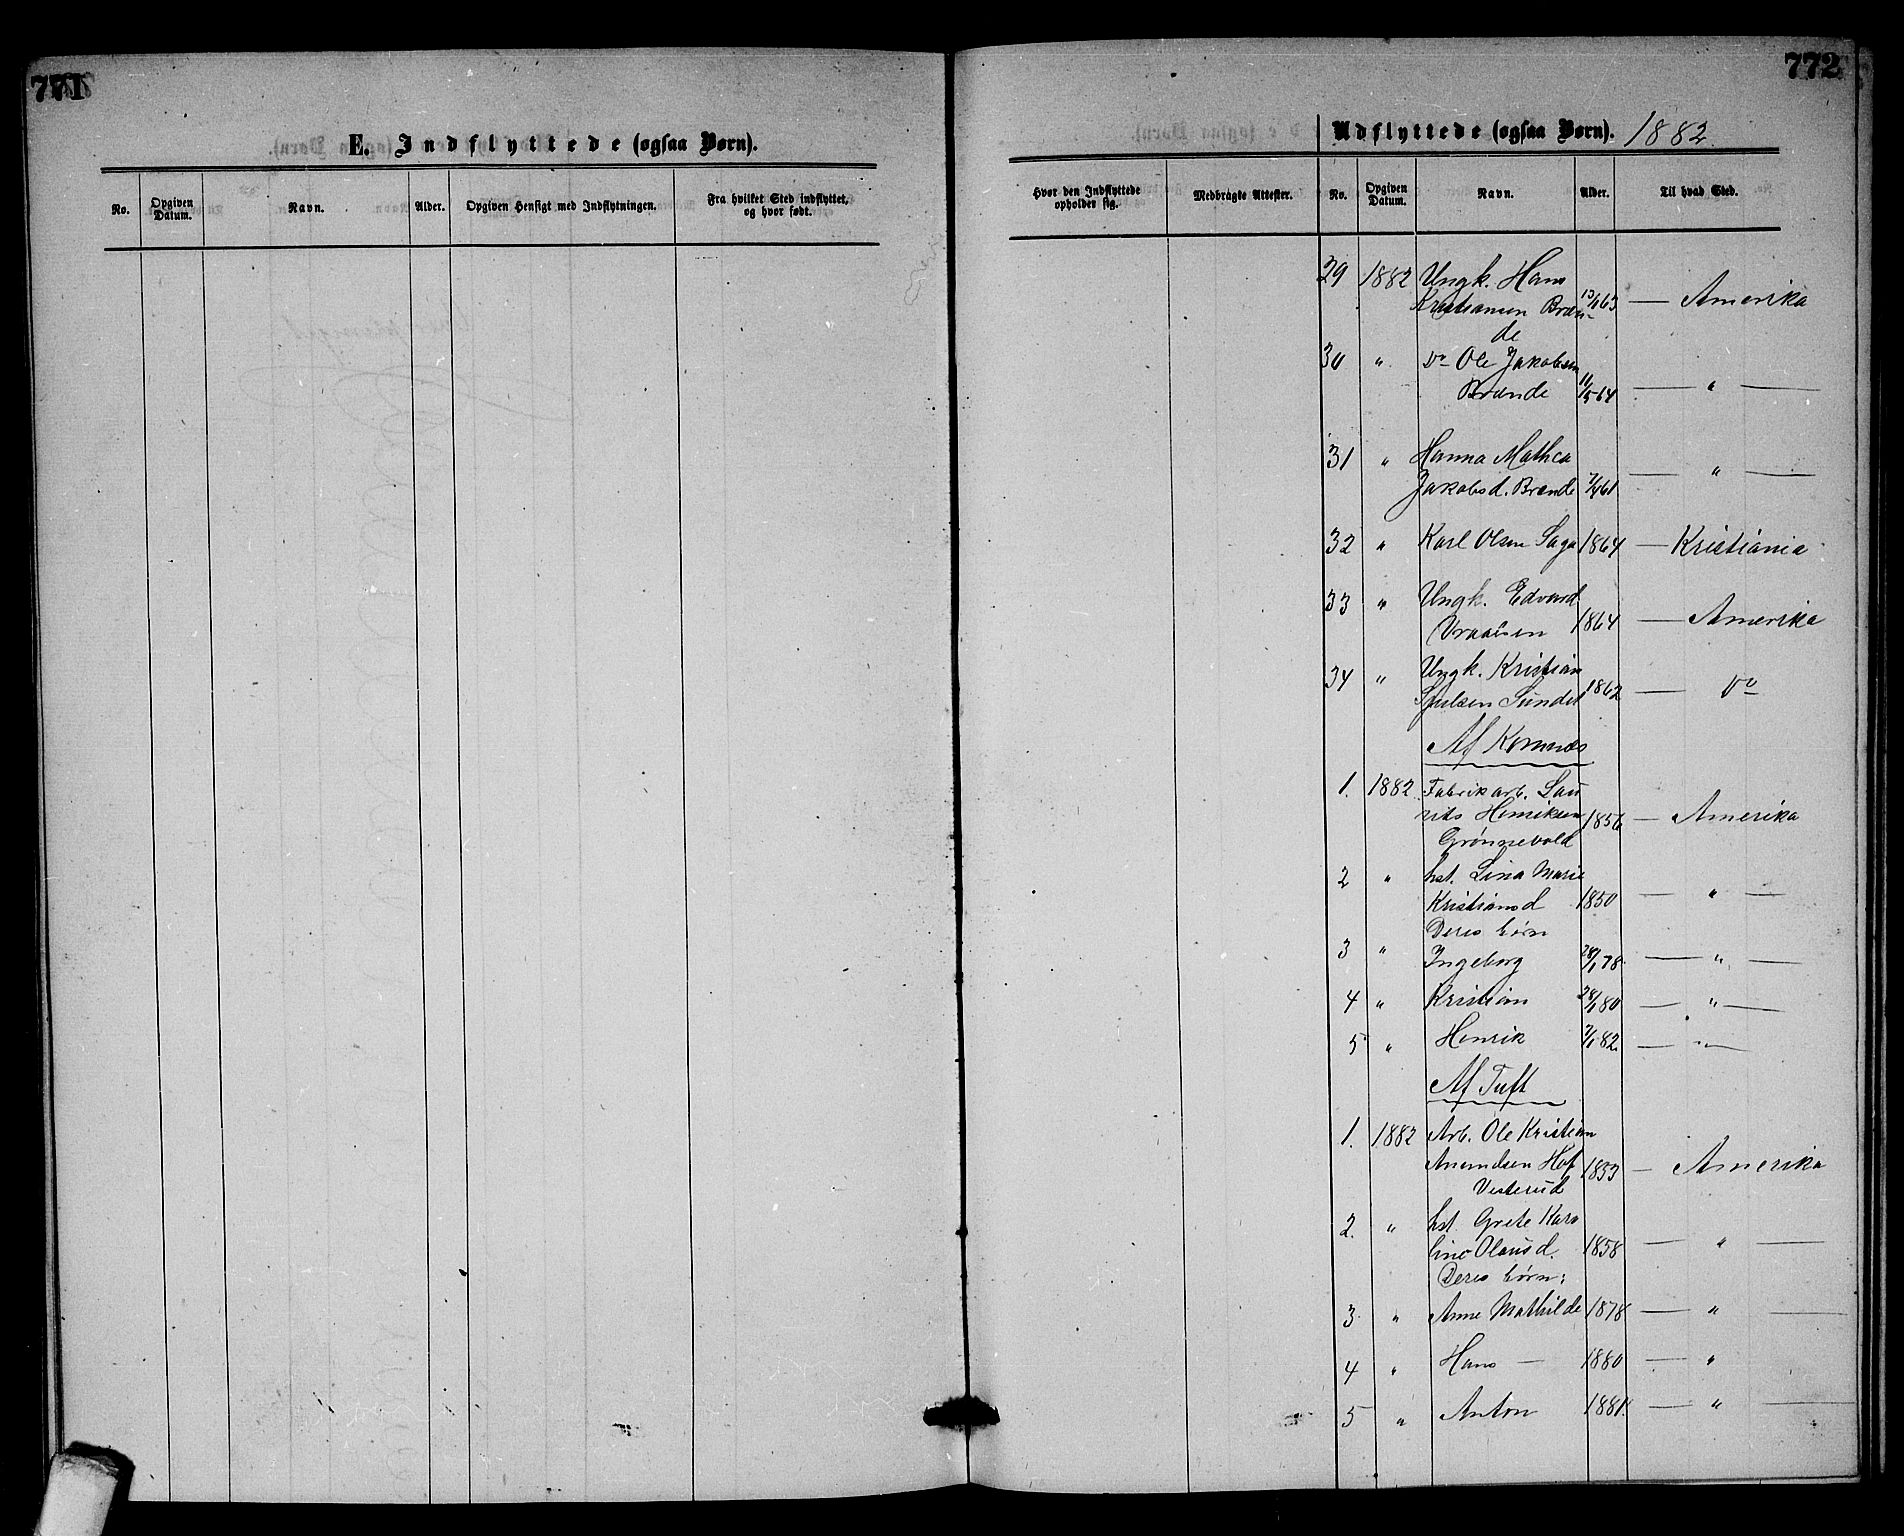 771
E. Indflyttede (ogsaa Børn).
No. Opgiven Datum. Navn. Alder. Opgiven Hensigt med Indflytningen. Fra hvilket Sted indflyttet, og hvor født.
772
Udflyttede (ogsaa Børn). 1882.
Hvor den Indflyttede opholder sig. Medbragte Attester. No. Opgiven Datum. Navn. Alder. Til hvad Sted.
29 1882 Ungk. Hans
Kristiansen Bræn- 63 — Amerika
de
30 " Do Ole Jakobsen
Brænde 11/5 64 — " —
31 " Hanna Mathea
Jakobsd. Brænde 7/4 61 — " —
32 " Karl Olsen Saga 1864 — Kristiania
33 " Ungk. Edvard
1864 — Amerika
34 " Ungk. Kristian
Sundet 1862 — Do
Af Komnes
1. 1882 Fabrikarb. Lau
rits Henriksen 1856 — Amerika
Grønnevold
2 " hst. Lina Marie
Kristiansd 1850 — " —
Deres børn
3 " Ingeborg 28/1 78. — " —
4 " Kristian 28/1 80 — " —
5 " Henrik 7/1 82. — " —
Af Tuft
1. 1882 Arb. Ole Kristian
Amundsen Hof 1853 — Amerika
Vesterud
2. " hst. Grete Karo
line Olausd. 1858 — " —
Deres børn:
3 " Anne Mathilde 1878 — " —
4 " Hans — 1880 — "
5 " Anton 1881. — " —